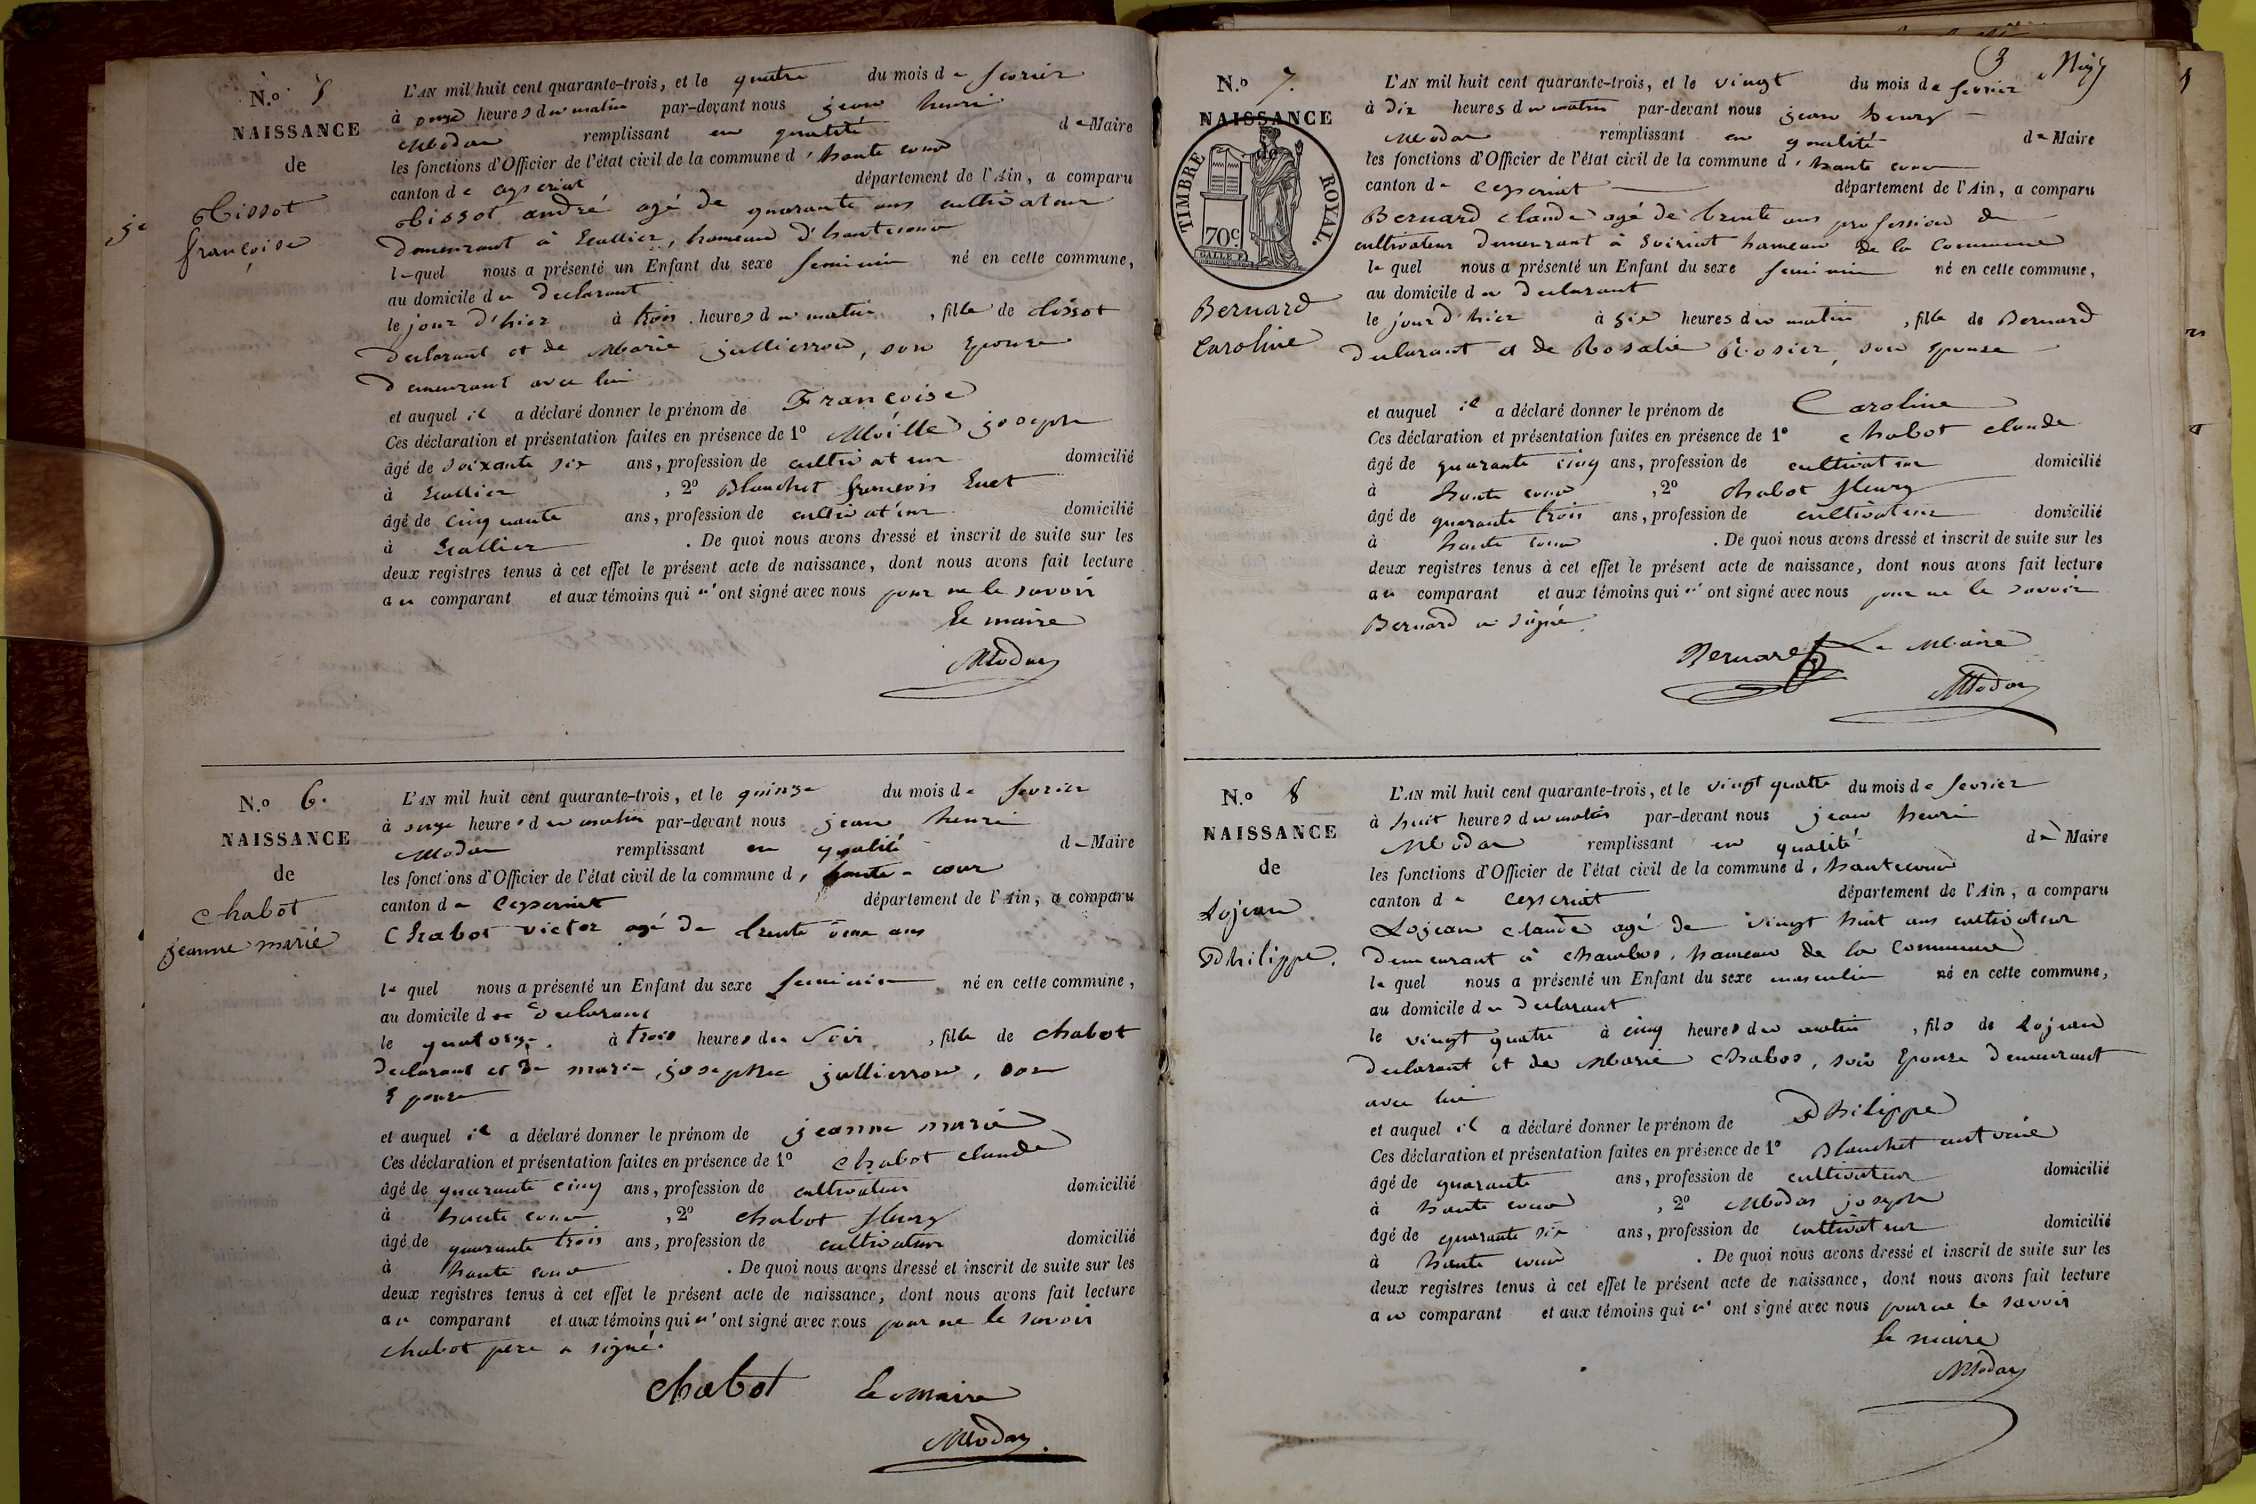 N.º 5
NAISSANCE
de
Tissot
françoise
L'AN mil huit cent quarante-trois, et le quatre du mois de fevrier
à onze heures du matin par-devant nous jean henri
Modas remplissant en qualité de Maire
les fonctions d'Officier de l'état civil de la commune d'haute cour
canton de ceyseriat département de l'Ain, a comparu
Tissot andré agé de quarante ans cultivateur
demeurant à , hameau d'hautecour
lequel nous a présenté un Enfant du sexe feminin né en cette commune,
au domicile du declarant
le jour d'hier à trois heures du matin, fille de tissot
declarant et de Marie jullierron, son Epouse
demeurant avec lui
et auquel il a déclaré donner le prénom de Françoise
Ces déclaration et présentation faites en présence de 1º joseph
âgé de soixante six ans, profession de cultivateur domicilié
à , 2º Blanchet françois
âgé de cinquante ans, profession de cultivateur domicilié
à . De quoi nous avons dressé et inscrit de suite sur les
deux registres tenus à cet effet le présent acte de naissance, dont nous avons fait lecture
au comparant et aux témoins qui n'ont signé avec nous pour ne le savoir
Le maire
Modas
N.º 6.
NAISSANCE
de
Chabot
jeanne marie
L'AN mil huit cent quarante-trois, et le quinze du mois de fevrier
à onze heures du matin par-devant nous jean henri
Modas remplissant en qualité de Maire
les fonctions d'Officier de l'état civil de la commune d'haute-cour
canton de ceyseriat département de l'Ain, a comparu
Chabot victor agé de trente ans
lequel nous a présenté un Enfant du sexe feminin né en cette commune,
au domicile du declarant
le quatorze à trois heures du soir, fille de chabot
declarant et de marie josephe jullierron, son
Epouse
et auquel il a déclaré donner le prénom de jeanne marie
Ces déclaration et présentation faites en présence de 1º chabot claude
âgé de quarante cinq ans, profession de cultivateur domicilié
à haute cour, 2º chabot fleury
âgé de quarante trois ans, profession de cultivateur domicilié
à haute cour. De quoi nous avons dressé et inscrit de suite sur les
deux registres tenus à cet effet le présent acte de naissance, dont nous avons fait lecture
au comparant et aux témoins qui n'ont signé avec nous pour ne le savoir
chabot pere a signé.
chabot Le maire
Modas
3
N.º 7.
NAISSANCE
de
TIMBRE ROYAL.
70c
Bernard
Caroline
L'AN mil huit cent quarante-trois, et le vingt du mois de fevrier
à dix heures du matin par-devant nous jean henry
Modas remplissant en qualité de Maire
les fonctions d'Officier de l'état civil de la commune d'haute cour
canton de ceyseriat département de l'Ain, a comparu
Bernard claude agé de trente ans profession de
cultivateur demeurant à hameau de la commune
lequel nous a présenté un Enfant du sexe feminin né en cette commune,
au domicile du declarant
le jour d'hier à six heures du matin, fille de Bernard
declarant et de Rosalie Rosier, son epouse
et auquel il a déclaré donner le prénom de Caroline
Ces déclaration et présentation faites en présence de 1º chabot claude
âgé de quarante cinq ans, profession de cultivateur domicilié
à haute cour, 2º chabot fleury
âgé de quarante trois ans, profession de cultivateur domicilié
à haute cour. De quoi nous avons dressé et inscrit de suite sur les
deux registres tenus à cet effet le présent acte de naissance, dont nous avons fait lecture
au comparant et aux témoins qui n'ont signé avec nous pour ne le savoir
Bernard a signé.
Bernard Le Maire
Modas
N.º 8
NAISSANCE
de
Lojean
Philippe.
L'AN mil huit cent quarante-trois, et le vingt quatre du mois de fevrier
à huit heures du matin par-devant nous jean henri
Modas remplissant en qualité de Maire
les fonctions d'Officier de l'état civil de la commune d'hautecour
canton de ceyseriat département de l'Ain, a comparu
Lojean claude agé de vingt huit ans cultivateur
demeurant à chambos, hameau de la commune
lequel nous a présenté un Enfant du sexe masculin né en cette commune,
au domicile du declarant
le vingt quatre à cinq heures du matin, fils de Lojean
declarant et de Marie chabos, son Epouse demeurant
avec lui
et auquel il a déclaré donner le prénom de Philippe
Ces déclaration et présentation faites en présence de 1º Blanchet antoine
âgé de quarante ans, profession de cultivateur domicilié
à haute cour, 2º Modas joseph
âgé de quarante six ans, profession de cultivateur domicilié
à haute cour. De quoi nous avons dressé et inscrit de suite sur les
deux registres tenus à cet effet le présent acte de naissance, dont nous avons fait lecture
au comparant et aux témoins qui n'ont signé avec nous pour ne le savoir
le maire
Modas